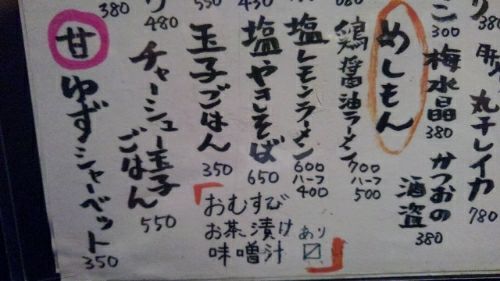 肝
丸干しイカ
780
梅水晶
380
かつおの
酒盗
380
300
めしもん
鶏醤油ラーメン
700
ハーフ
500
塩レモンラーメン
600
ハーフ
400
塩やきそば
650
玉子ごはん
350
おむすび
お茶漬け
味噌汁
あり
チャーシュー玉子
ごはん
550
甘
ゆずシャーベット
350
380
480
550
430
380